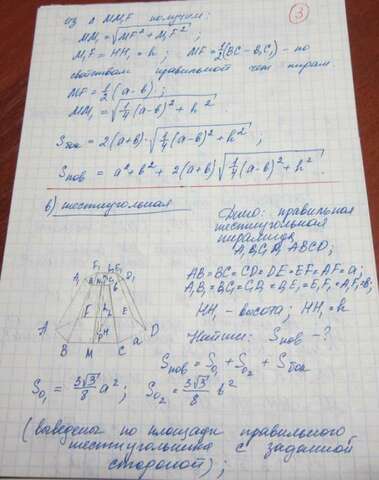 ③
из △ MM₁F получим:
MM₁ = √(MF² + M₁F²) ;
M₁F = HH₁ = h ; MF = 1/2 (BC - B₁C₁) - по
свойствам правильной чет. пирам.
MF = 1/2 (a - b) ;
MM₁ = √(1/4 (a-b)² + h²)
Sбок = 2(a+b) · √(1/4 (a-b)² + h²) ;
Sпов = a² + b² + 2(a+b) √(1/4 (a-b)² + h²) .
в) шестиугольная
Дано: правильная
шестиугольная
пирамида
ABCD;
AB = BC = CD = DE = EF = AF = a;
A₁B₁ = B₁C₁ = C₁D₁ = D₁E₁ = E₁F₁ = A₁F₁ = b;
HH₁ - высота; HH₁ = h
Найти: Sпов - ?
Sпов = S₀₁ + S₀₂ + Sбок
A₁ F₁ E₁ D₁
F E
A B M P H C a D
S₀₁ = 3√3/8 a² ; S₀₂ = 3√3/8 b²
(выведены по площади правильного
шестиугольника с заданной
стороной) ;